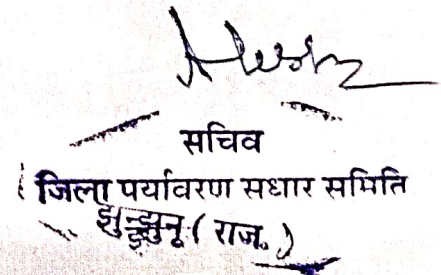 सचिव
जिला पर्यावरण सधार समिति
झुन्झुनू ( राज. )